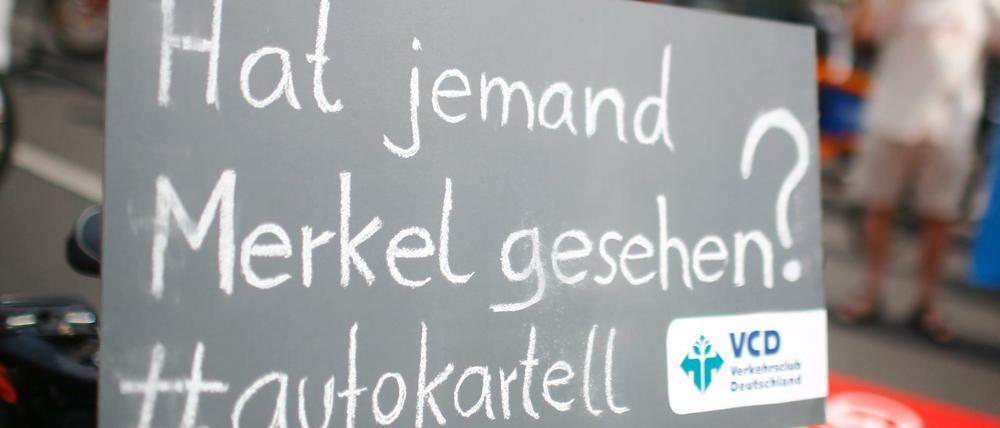 Hat jemand
Merkel gesehen?
#autokartell
VCD
Verkehrsclub
Deutschland